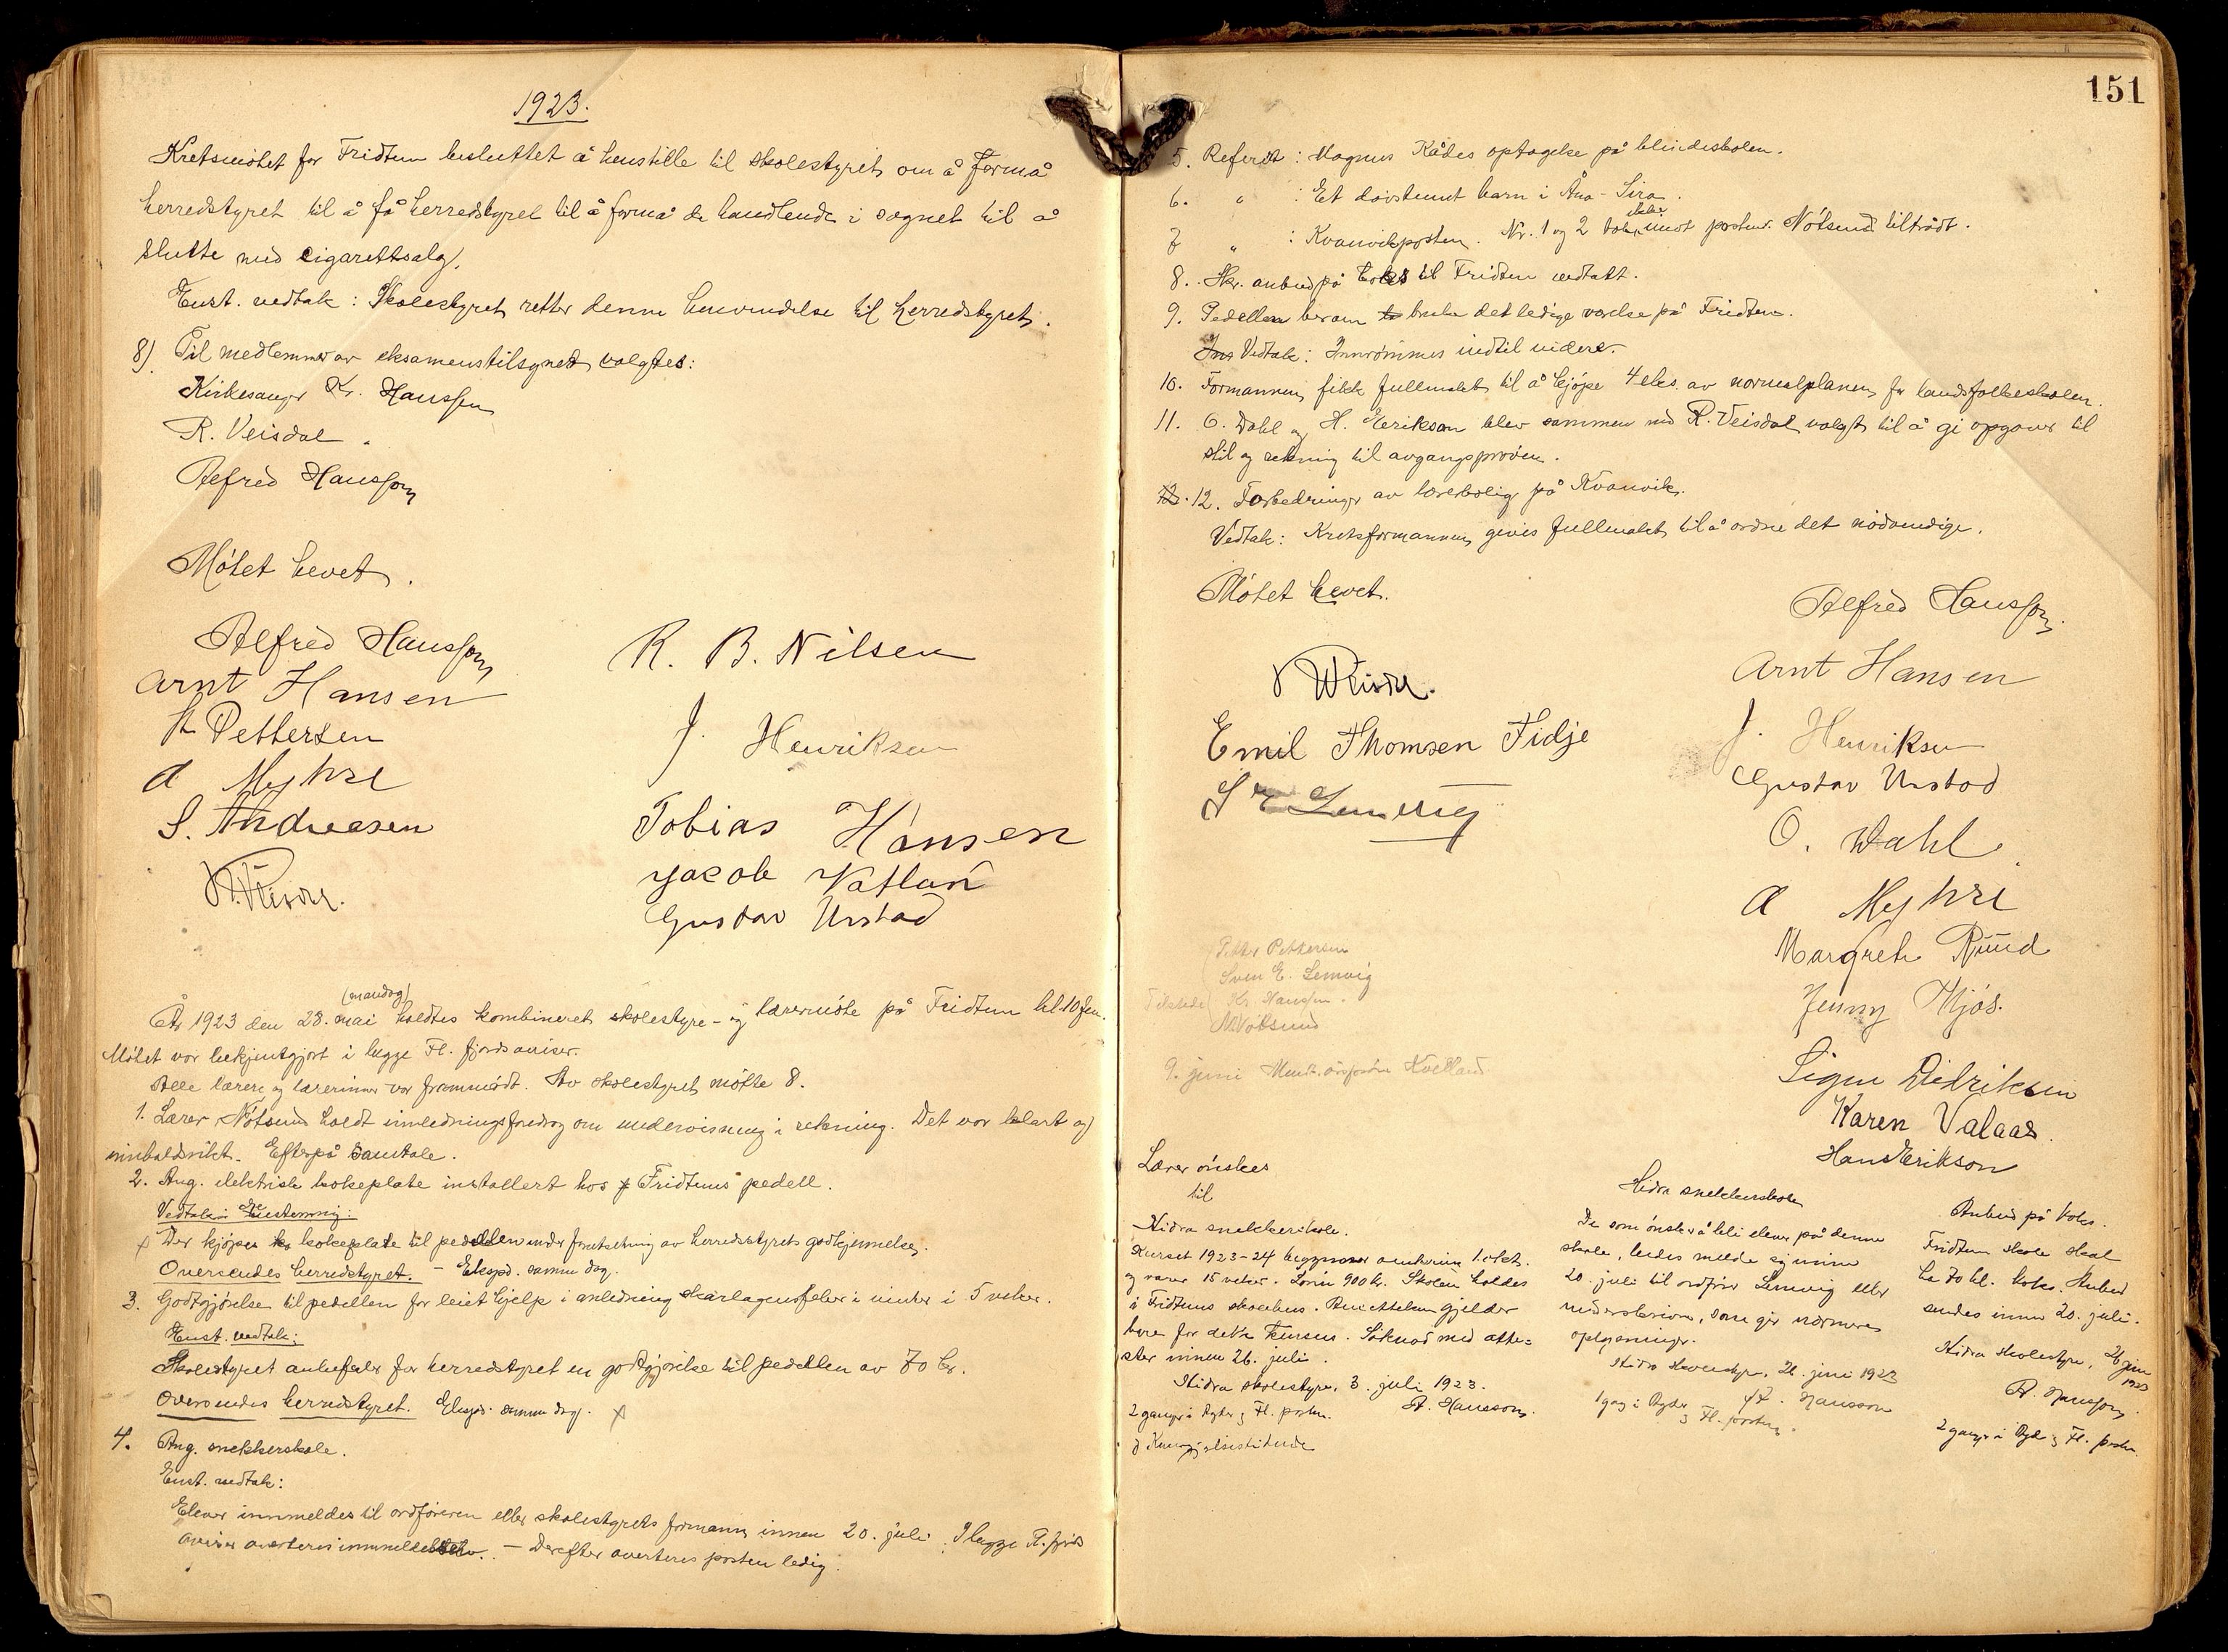 1923.
Kretsmötet for Fridtun besluttet å henstille til skolestyret om å formå
herredstyret til å få herredstyret til å formå de handlende i sognet til å
slutte med cigarettsalg.
Enst. vedtak: Skolestyret retter denne henvendelse til herredstyret.
8) Til medlemmer av eksamenstilsynet valgtes:
Kirkesanger Kr. Hanssen
R. Veisdal.
Alfred Hansson
Mötet hevet.
Alfred Hansson
Arnt Hansen
Pettersen
A Myhre
S. Andreasen
R. B. Nilsen
J. Henriksen
Tobias Hansen
Jacob Vatland
Gustav Urstad
(mandag)
År 1923 den 28. mai holdtes kombineret skolestyre- og lærermöte på Fridtun kl. 10 fm.
Mötet var bekjentgjort i begge Fl. fjords aviser.
Alle lærere og lærerinner var frammödt. Av skolestyret mötte 8.
1. Lærer Nötsund holdt innledningsforedrag om undervisning i rekning. Det var klart og
innholdsrikt. Efterpå samtale.
2. Ang. elektrisk kokeplate installert hos Fridtuns pedell.
Vedtak: Enstemmig:
x Der kjöpes kokeplate til pedellen under forutsetning av herredsstyrets godkjennelse.
Oversendes herredstyret. - Eksped. samme dag.
3. Godtgjörelse til pedellen for leiet hjelp i anledning skarlagensfeber i vinter i 5 veker.
Enst. vedtak:
Skolestyret anbefaler for herredstyret en godtgjörelse til pedellen av 70 kr.
Oversendes herredstyret. Eksped. samme dag. x
4. Ang. snekkerskole.
Enst. vedtak:
Elever innmeldes til ordföreren eller skolestyrets formann innen 20. juli. I begge Fl. fjords
aviser averteres - Derefter averteres posten ledig.
151
5. Referert: Magnus Rådes optagelse på blindeskolen.
6. " : Et dövstumt barn i Åna-Sira.
7 " : Kvanvikposten. Nr. 1 og 2 tok ikke imot posten. Nötsund tiltrådt.
8. Skr. anbud på koks til Fridtun vedtatt.
9. Pedellen ber om bruke det ledige værelse på Fridtun.
Vedtak: Innrömmes indtil videre.
10. Formannen fikk fullmakt til å kjöpe 4 eks. av normalplanen for landsfolkeskolen.
11. O. Dahl og H. Eerikson blev sammen med R. Veisdal valgt til å gi opgaver til
stil og rekning til avgangspröven.
12. Forbedringer av lærerbolig på Kvanvik.
Vedtak: Kretsformannen gives fullmakt til å ordne det nödvendige.
Mötet hevet.
Emil Thomsen Fidje
S E Lemvig
Alfred Hansson
Arnt Hansen
J. Henriksen
Gustav Urstad
O. Dahl
A Myhre
Margrethe Ruud
Jenny Mjös.
Signe Didriksen
Karen Valaas
Hans Erikson
Tilstede
Petter Pettersen
Sven E. Lemvig
Kr. Hanssen.
Nötsund
9. juni
Lærer önskes
til
Hidra snekkerskole.
Kurset 1923-24 begynner omkring 1. okt.
og varer 15 veker. Lönn 900 kr. Skolen holdes
i Fridtuns skolehus. Ansettelsen gjelder
bare for dette kursus. Söknad med atte=
ster innen 26. juli.
Hidra skolestyre, 3. juli 1923.
A. Hansson.
2 ganger i Agder og Fl. posten.
Hidra snekkerskole
De som önsker å bli elever på denne
skole, bedes melde sig innen
20. juli til ordförer Lemvig eller
undertegnede, som gir nærmere
oplysninger.
Hidra skolestyre, 26. juni 1923
A. Hansson
1 gag i Agder
og Fl. posten.
Anbud på koks.
Fridtun skole skal
ha 70 hl. koks. Anbud
sendes innen 20. juli.
Hidra skolestyre, 26 juni
1923
A. Hansson.
2 ganger i Agd. og Fl. posten.